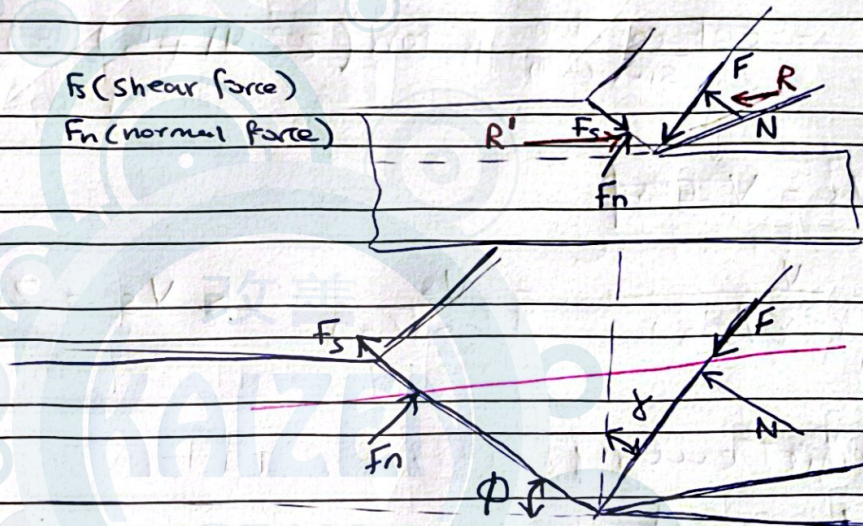 Fs (shear force)
Fn (normal force)
F
R
N
R'
Fs
Fn
改善
KAIZEN
Fs
F
γ
N
Fn
Φ